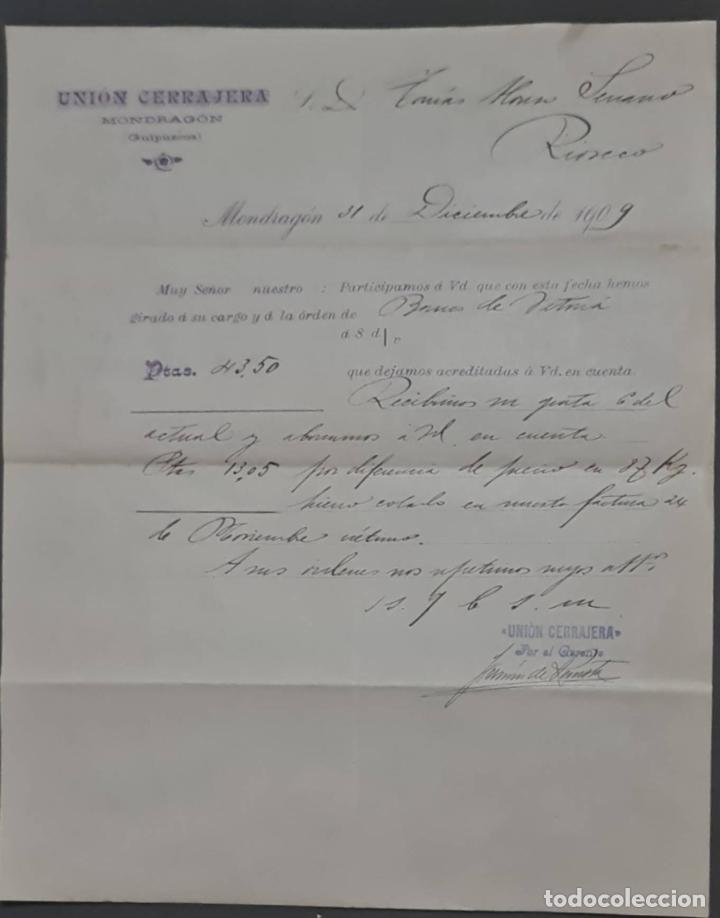 UNIÓN CERRAJERA
MONDRAGÓN
(Guipúzcoa)
S. D. Tomás Serrano
Rioseco
Mondragón 31 de Diciembre de 1909
Muy Señor nuestro : Participamos á Vd que con esta fecha hemos
girado á su cargo y á la órden de Banco de Vitoria
á 8 d/v
Ptas. 43,50 que dejamos acreditadas á Vd. en cuenta.
Recibimos su grata 6 del
actual y abonamos á Vd. en cuenta
Ptas 13,05 por diferencia de precio en 87 Kg.
hierro colado en nuestra factura 24
de Noviembre último.
A sus órdenes nos repetimos suyos atts.
s. s. q b s. m
«UNIÓN CERRAJERA»
Por el Gerente
todocoleccion
todocoleccion.net